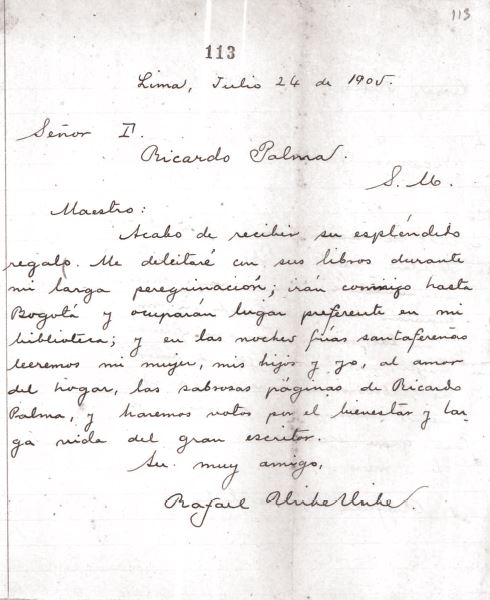 113
113
Lima, Julio 24 de 1905.
Señor D.
Ricardo Palma.
S. M.
Maestro:
Acabo de recibir su espléndido
regalo. Me deleitaré con sus libros durante
mi larga peregrinación; irán conmigo hasta
Bogotá y ocuparán lugar preferente en mi
biblioteca; y en las noches frías santafereñas
leeremos mi mujer, mis hijos y yo, al amor
del hogar, las sabrosas páginas de Ricardo
Palma, y haremos votos por el bienestar y lar-
ga vida del gran escritor.
Su muy amigo,
Rafael Uribe Uribe.